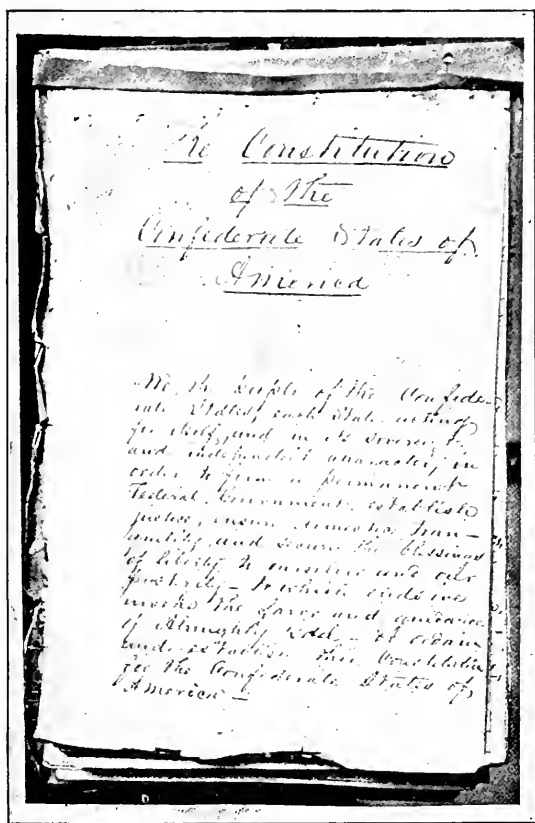 The Constitution
of the
Confederate States of
America
We, the people of the Confede-
rate States, each State acting
for itself, and in its sovereign
and independent character, in
order to form a permanent
Federal Government, establish
justice, ensure domestic tran-
quility, and secure the blessings
of liberty to ourselves and our
posterity — to which ends we
invoke the favor and guidance
of Almighty God — do ordain
and establish this Constitution
for the Confederate States of
America —